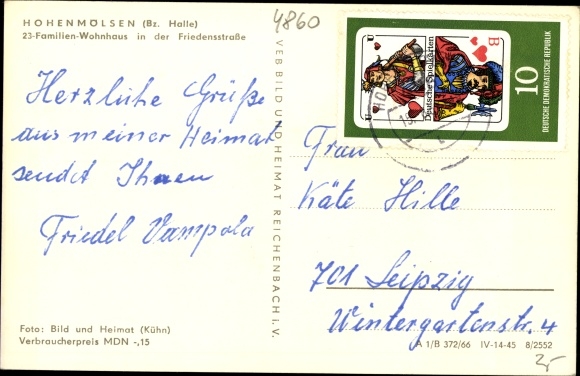 HOHENMÖLSEN (Bz. Halle)
23-Familien-Wohnhaus in der Friedensstraße
4860
Herzliche Grüße
aus meiner Heimat
sendet Ihnen
Friedel Vampola
Foto: Bild und Heimat (Kühn)
Verbraucherpreis MDN -,15
VEB BILD UND HEIMAT REICHENBACH i. V.
U
U
Deutsche Spielkarten
B
B
10
DEUTSCHE DEMOKRATISCHE REPUBLIK
Frau
Käte Hille
701 Leipzig
Wintergartenstr. 4
A 1/B 372/66 IV-14-45 8/2552